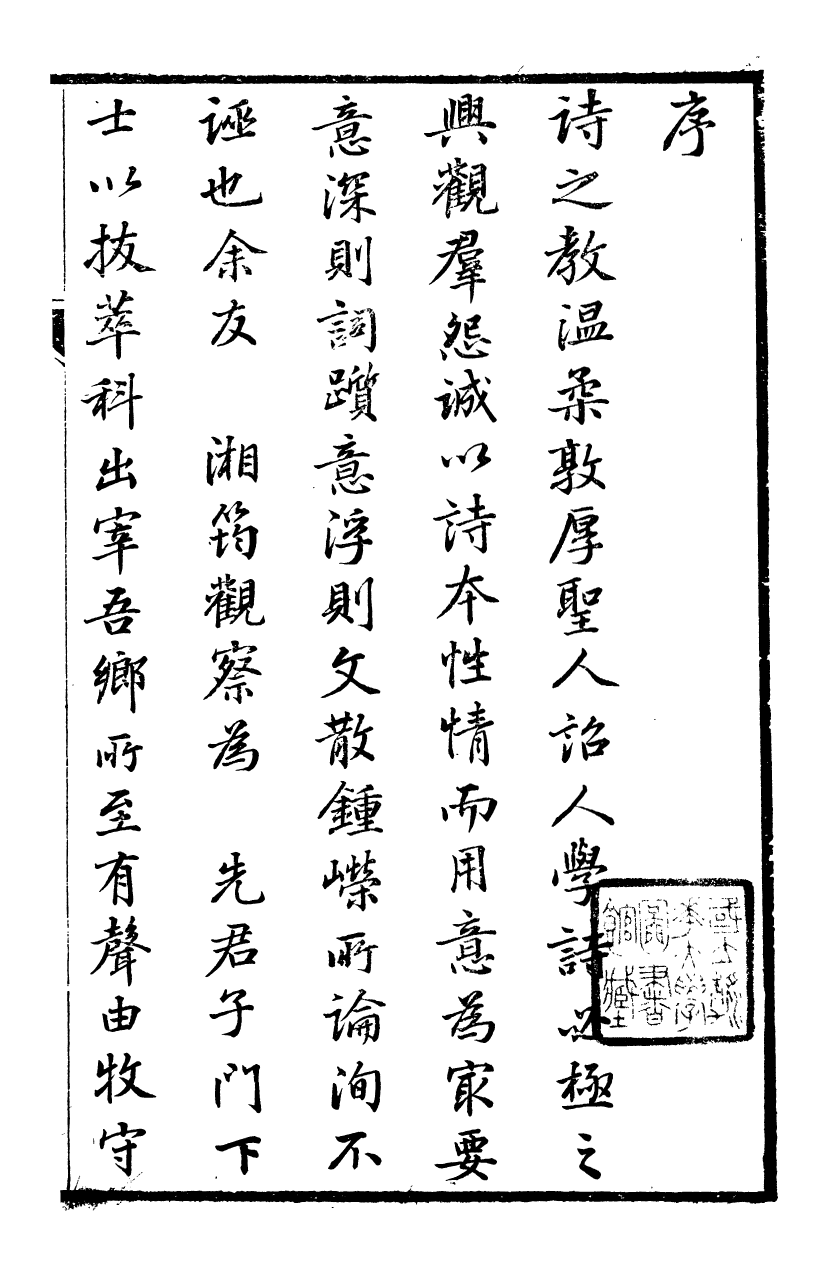 序
詩之教温柔敦厚聖人詔人學詩必極之
興觀羣怨誠以詩本性情而用意為㝡要
意深則詞躓意浮則文散鍾嶸所論洵不
誣也余友 湘筠觀察為 先君子門下
士以拔萃科出宰吾鄉所至有聲由牧守
國立清華大學圖書館藏